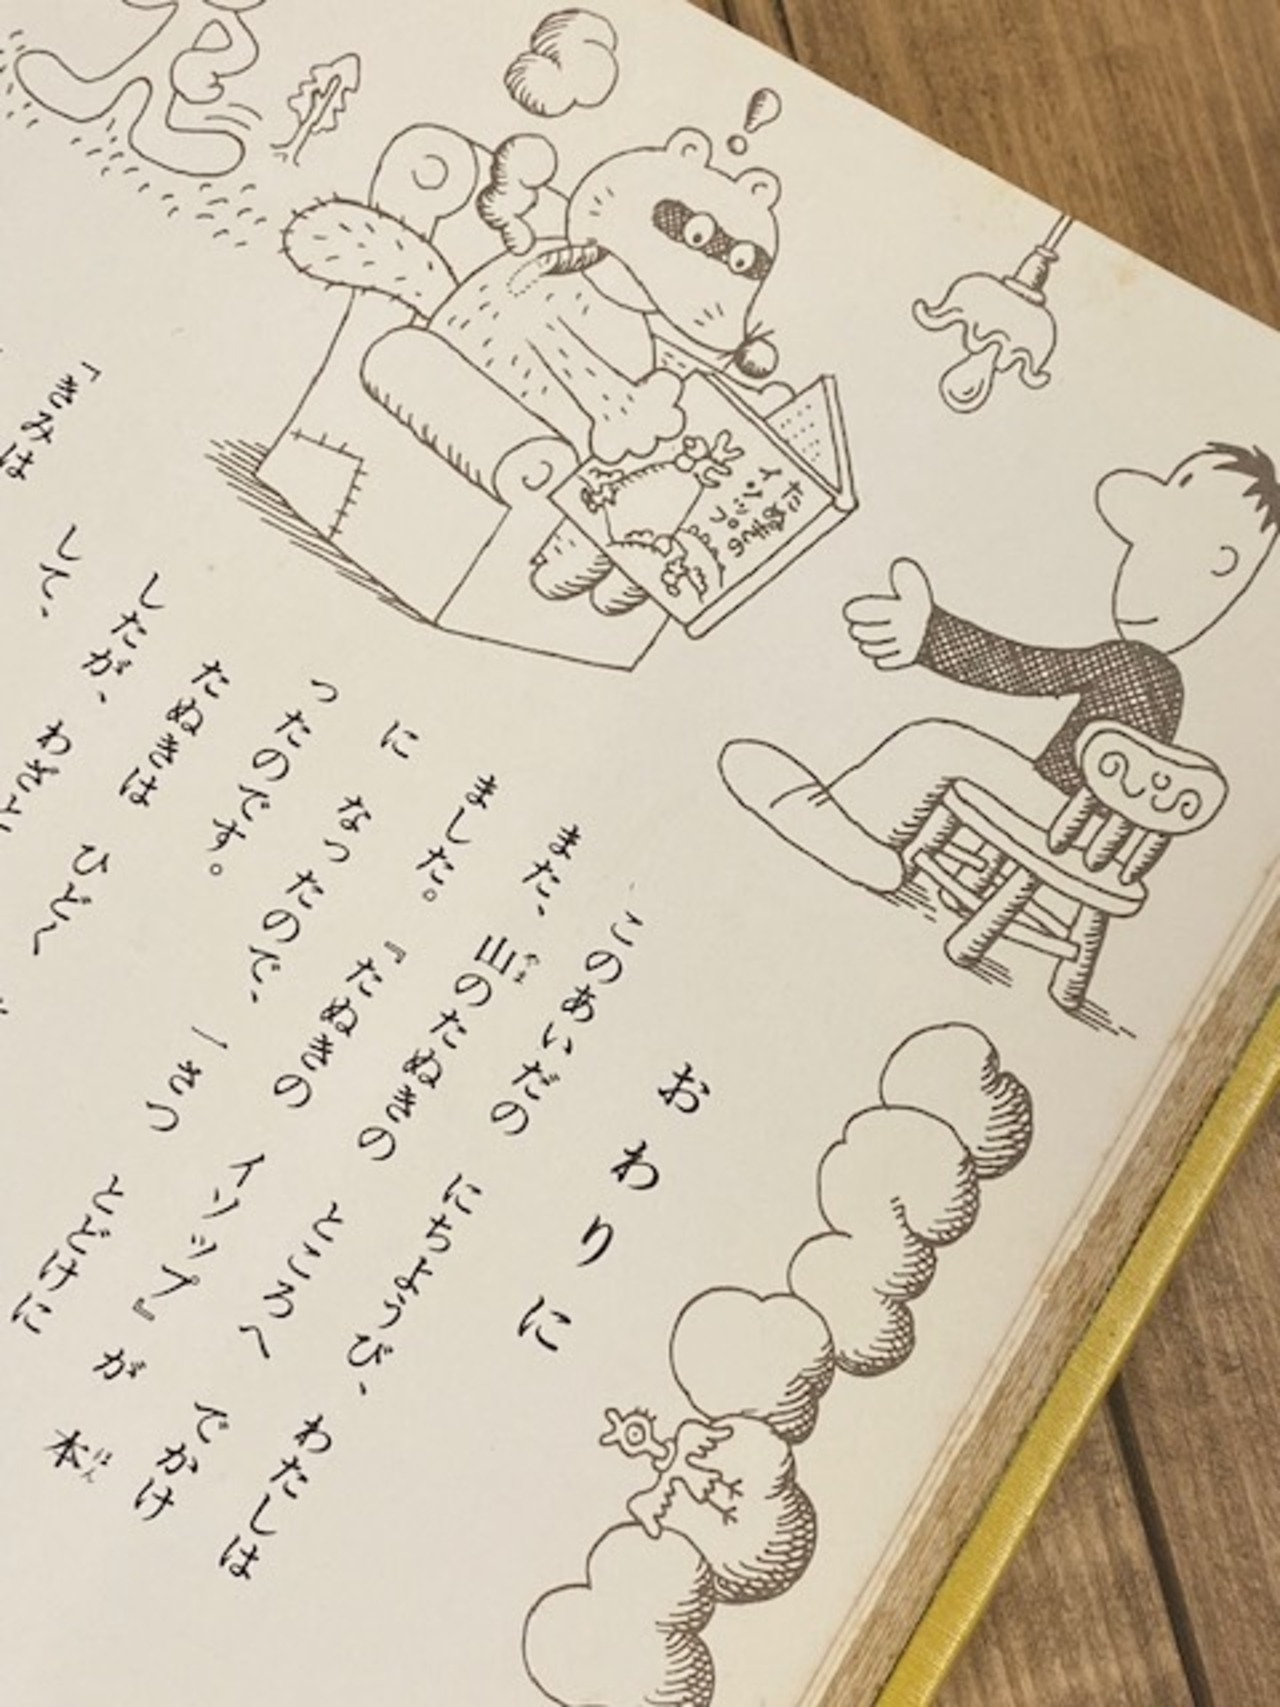 たぬきの
イソップ
おわりに
このあいだの にちようび、 わたしは
また、 山のたぬきの ところへ でかけ
やま
ました。 『たぬきの イソップ』が 本
ほん
に なったので、 一さつ とどけに
ったのです。
たぬきは ひどく
したが、 わざと
して、
「きみは